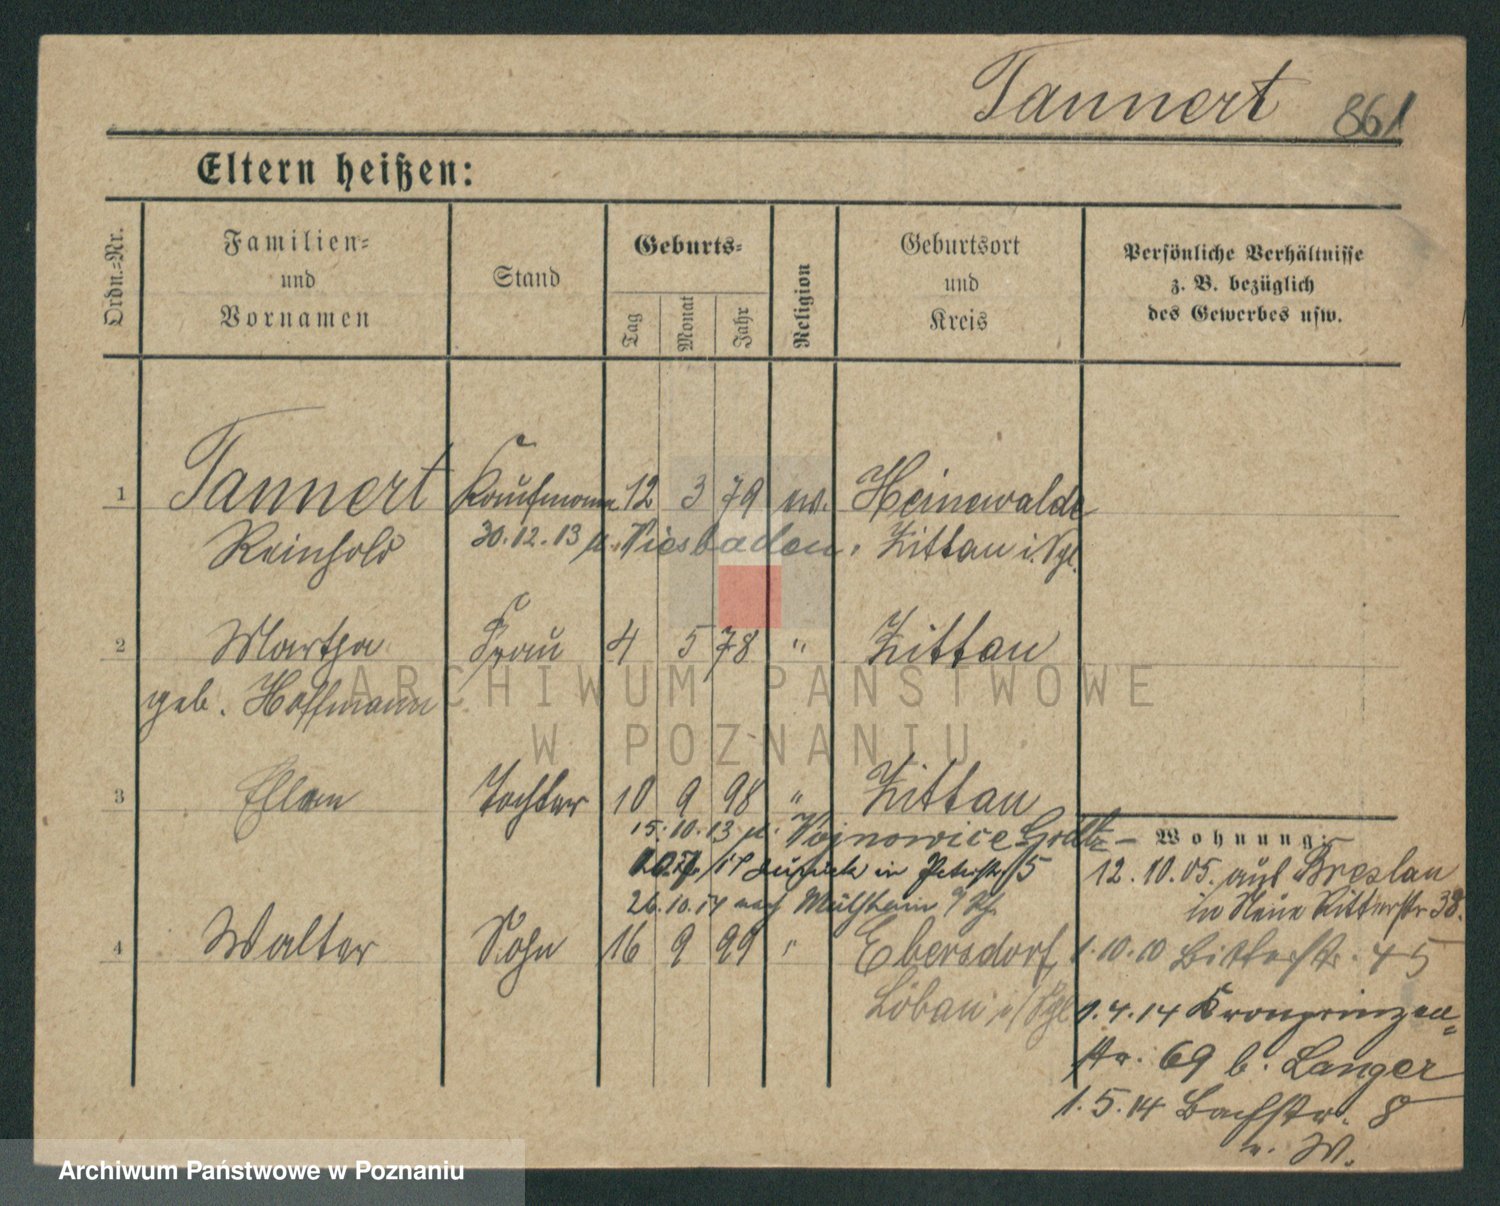 Tannert 861
Eltern heißen:
Ordn.-Nr.
Familien-
und
Vornamen
Stand
Geburts-
Tag
Monat
Jahr
Religion
Geburtsort
und
Kreis
Persönliche Verhältnisse
z. B. bezüglich
des Gewerbes usw.
1 Tannert Kaufmann 12 3 79 ev. Heinewalde
Reinhold 30.12.13 n. Wiesbaden. Zittau i.
2 Martha Frau 4 5 78 " Zittau
geb. Hoffmann
ARCHIWUM PAŃSTWOWE
W POZNANIU
3 Ellen Tochter 10 9 98 " Zittau
15.10.13 n. Wojnowice
zurück in 5
26.10.14 nach
4 Walter Sohn 16 9 99 " Ebersdorf,
Löbau
Wohnung:
12.10.05. aus Breslau
in Neue Ritterstr 38.
1.10.10 Ritterstr. 45
1.4.14 Kronprinzen-
str. 69 b. Langer
1.5.14 Bachstr. 8
n. W.
Archiwum Państwowe w Poznaniu